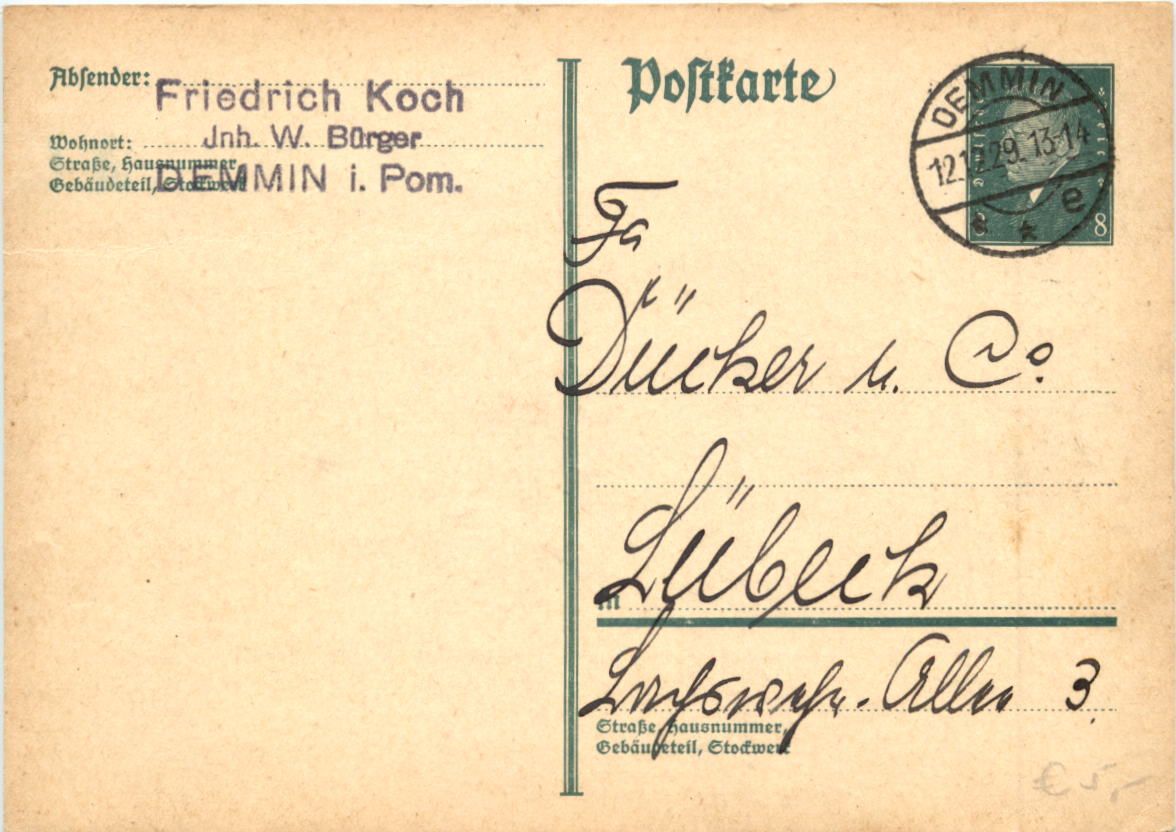 Postkarte
Absender:
Friedrich Koch
Jnh. W. Bürger
Wohnort:
Straße, Hausnummer,
Gebäudeteil, Stockwerk
DEMMIN i. Pom.
DEMMIN
12.12.29. 13-14
* e
8 8
Fa
Dücker u. Co.
in Lübeck
Lachswehr-Allee 3.
Straße, Hausnummer,
Gebäudeteil, Stockwerk
€ 5,-